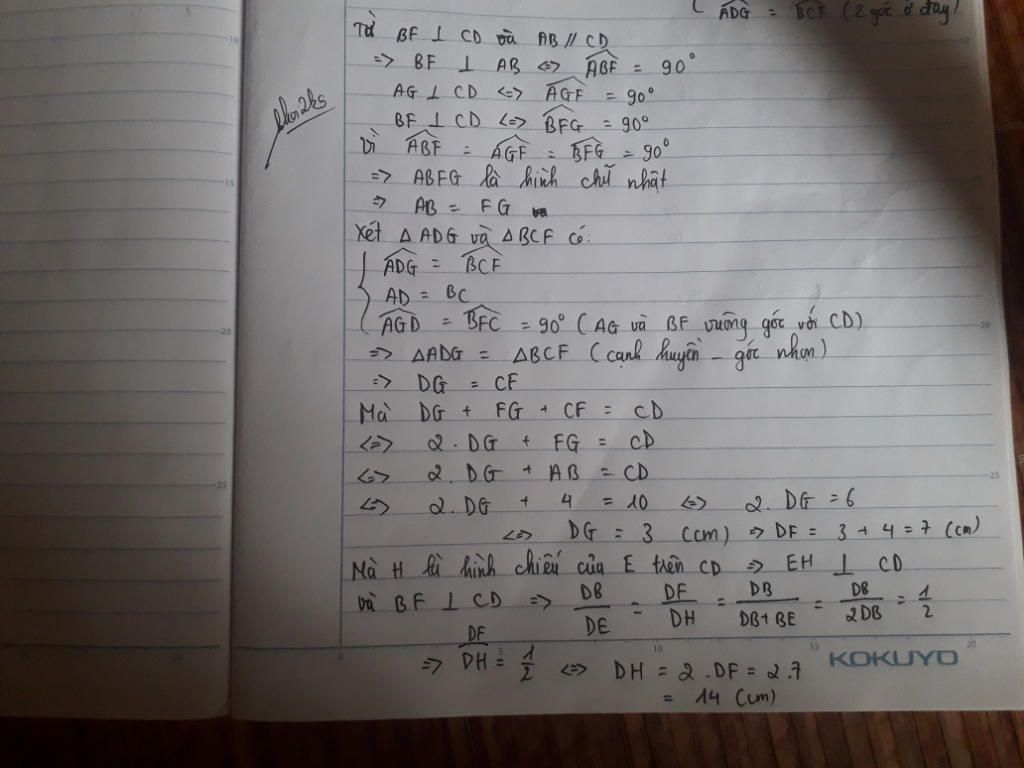 { ADG = BCF (2 góc ở đáy)
Từ BF ⊥ CD và AB // CD
=> BF ⊥ AB <=> ABF = 90°
AG ⊥ CD <=> AGF = 90°
BF ⊥ CD <=> BFG = 90°
Vì ABF = AGF = BFG = 90°
=> ABFG là hình chữ nhật
=> AB = FG
Xét △ ADG và △ BCF có:
{ ADG = BCF
AD = BC
AGD = BFC = 90° (AG và BF vuông góc với CD)
=> △ADG = △BCF (cạnh huyền - góc nhọn)
=> DG = CF
Mà DG + FG + CF = CD
<=> 2.DG + FG = CD
<=> 2.DG + AB = CD
<=> 2.DG + 4 = 10 <=> 2.DG = 6
<=> DG = 3 (cm) => DF = 3 + 4 = 7 (cm)
Mà H là hình chiếu của E trên CD => EH ⊥ CD
và BF ⊥ CD => DB/DE = DF/DH = DB/DB+BE = DB/2DB = 1/2
=> DF/DH = 1/2 <=> DH = 2.DF = 2.7
= 14 (cm)
KOKUYO